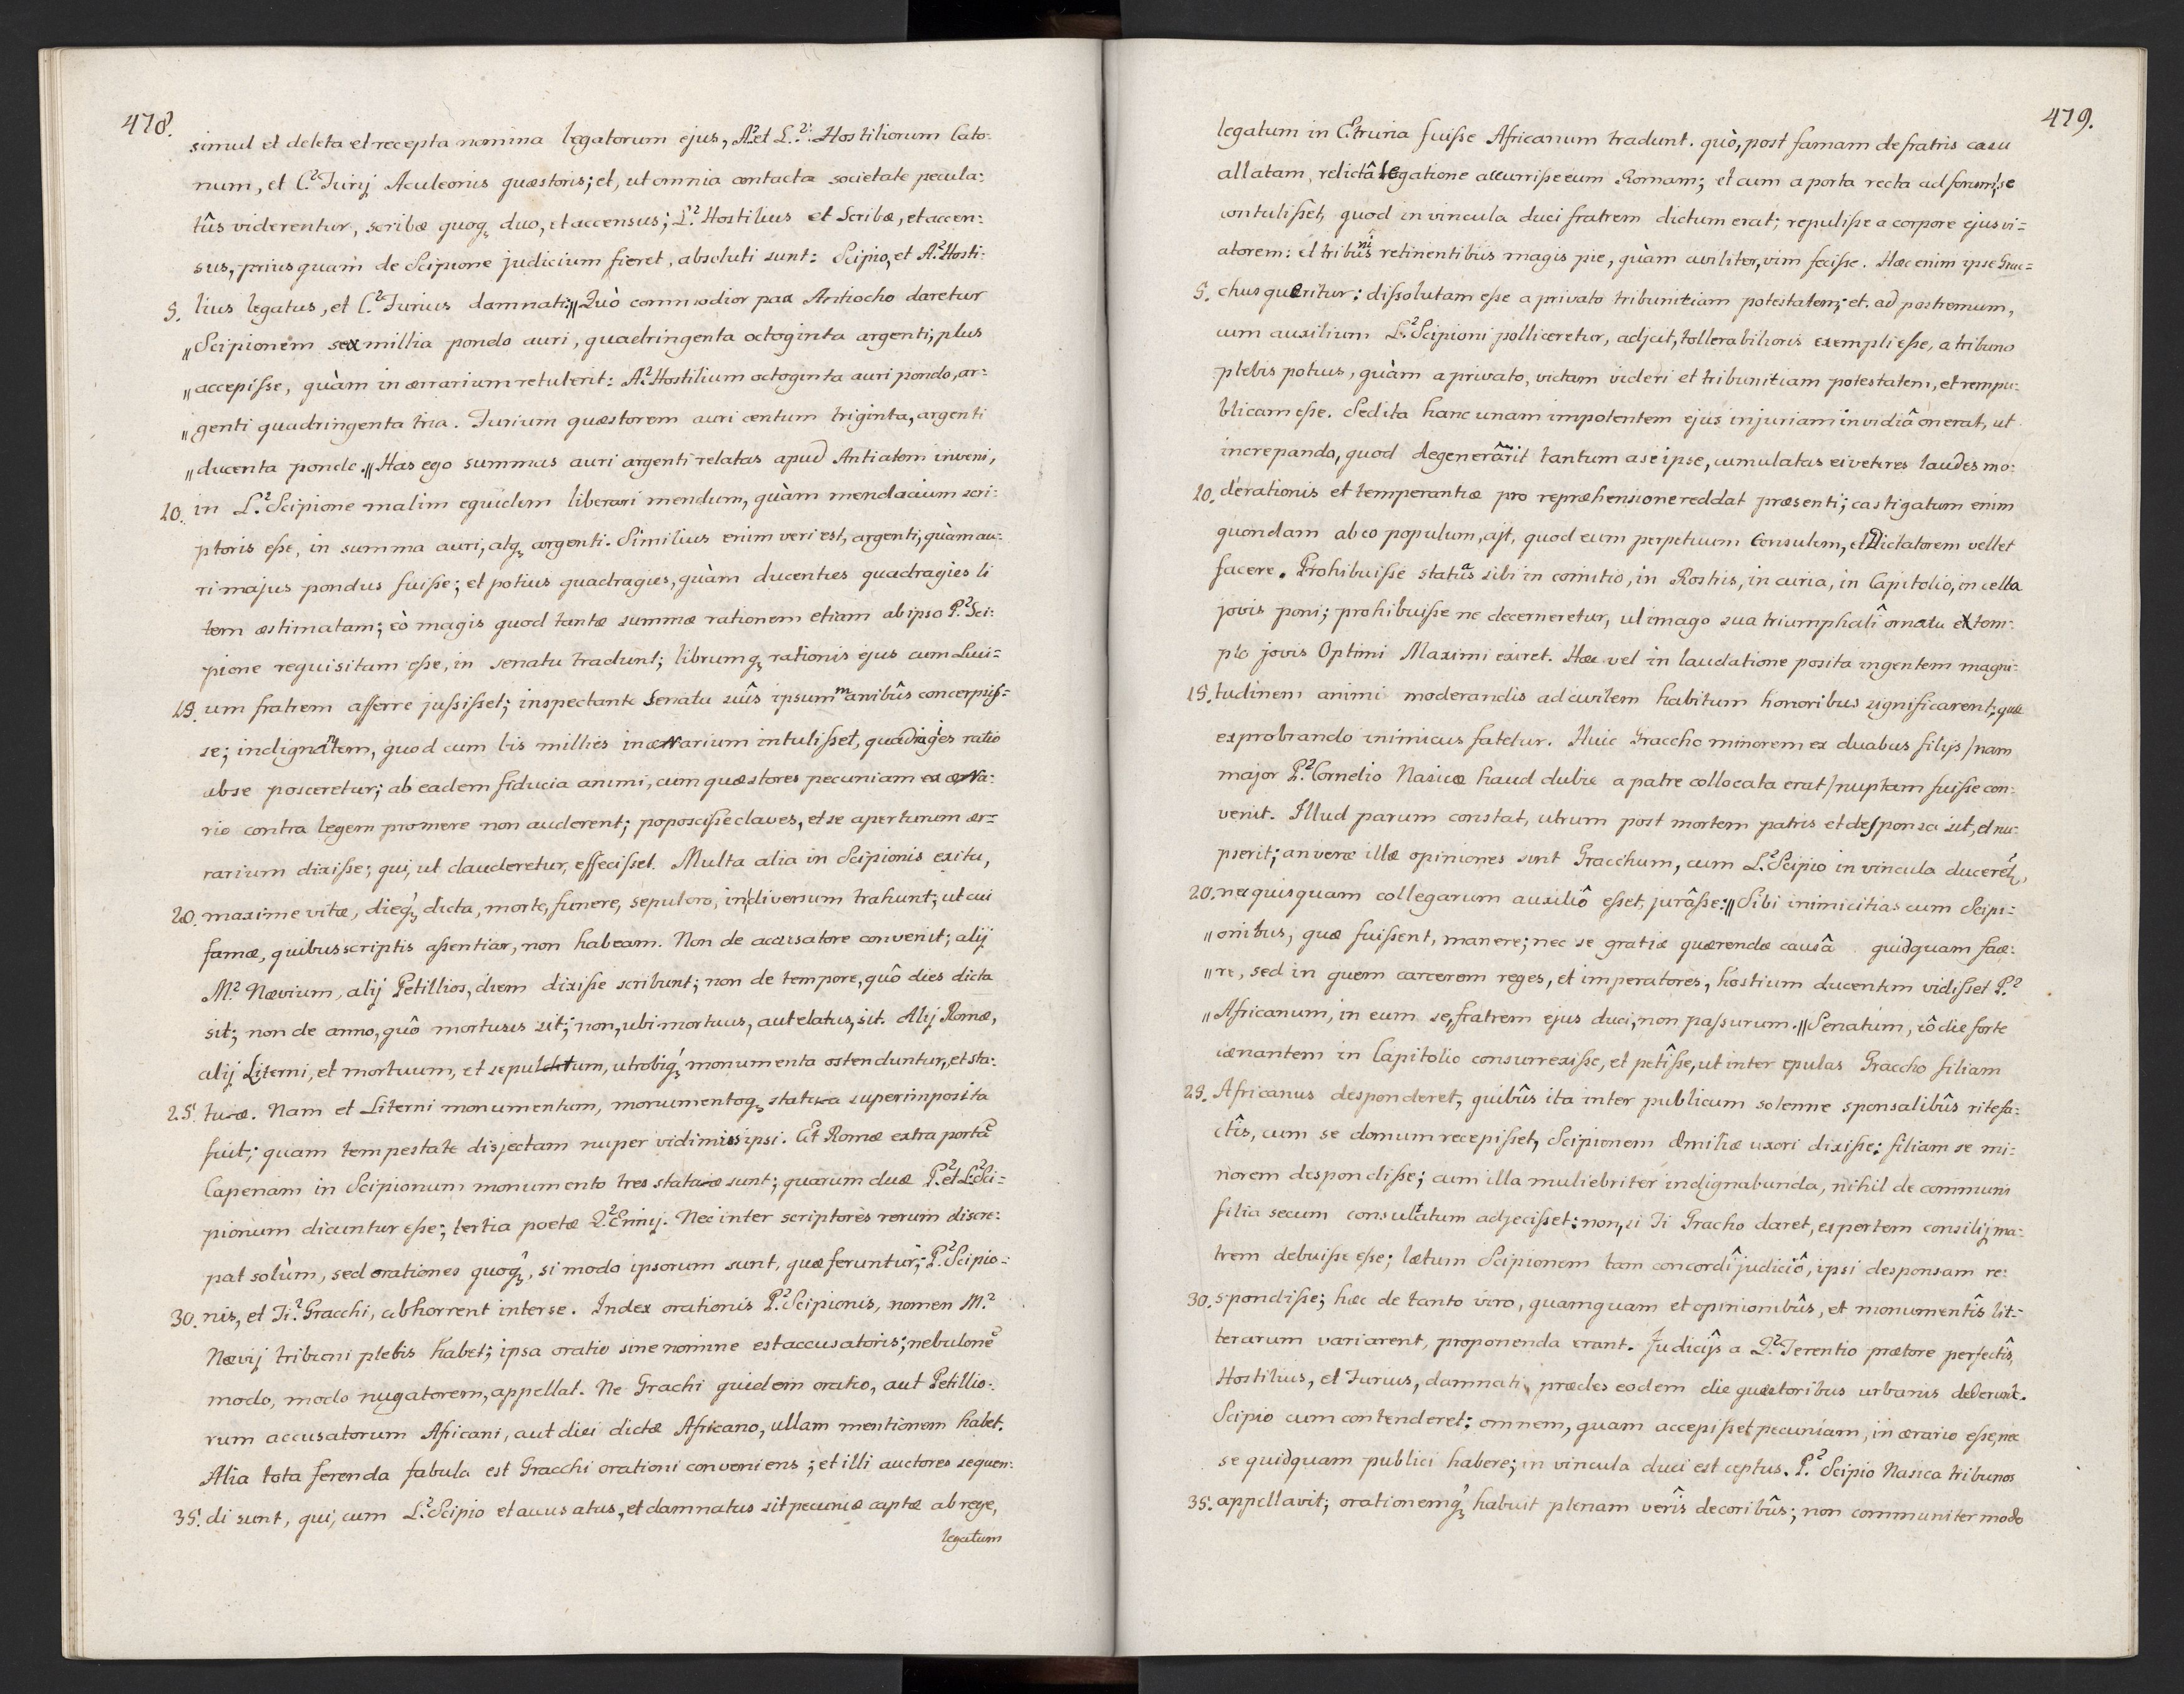 478.
simul et deleta et recepta nomina legatorum ejus, A.² et L.² Hostiliorum Cato-
num, et C.² Furij Aculeonis quæstoris; et, ut omnia contacta societate pecula:
tûs viderentur, scribæ quoq₃ duo, et accensus; L.² Hostilius et Scribæ, et accen:
sus, priusquam de Scipione judicium fieret, absoluti sunt: Scipio, et A.² Hosti:
5. lius legatus, et C.² Furius damnati: „Quò commodior pax Antiocho daretur
„Scipionem sex millia pondo auri, quadringenta octoginta argenti; plus
„accepiſse, quàm in ærrarium retulerit: A.² Hostilium octoginta auri pondo, ar:
„genti quadringenta tria. Furium quæstorem auri centum triginta, argenti
„ducenta pondo.„ Has ego summas auri argenti relatas apud Antiatem inveni,
10. in L.² Scipione malim equidem liberari mendum, quàm mendacium scri:
ptoris eſse, in summa auri, atq₃ argenti. Similius enim veri est, argenti, quàm au:
ri majus pondus fuiſse; et potius quadragies, quàm ducenties quadragies li
tem æstimatam; eò magis quod tantæ summæ rationem etiam ab ipso P.² Sci:
pione requisitam eſse, in senatu tradunt; librumq₃ rationis ejus cum Luci=
15. um fratrem afferre juſsiſset; inspectante Senatu suîs ipsum manibûs concerpsiſ=
se; indignantem, quod cum bis millies in ærrarium intuliſset, quadragies ratio
ab se posceretur; ab eadem fiducia animi, cum quæstores pecuniam ex ærra:
rio contra legem promere non auderent; poposciſse claves, et se aperturum ær=
rarium dixiſse; qui, ut clauderetur, effeciſset. Multa alia in Scipionis exitu,
20. maxime vitæ, dieq₃ dicta, morte, funere, sepulcro, in diversum trahunt; ut cui
famæ, quibus scriptis aſsentiar, non habeam. Non de accusatore convenit; alij
M.² Nævium, alij Petillios, diem dixiſse scribunt; non de tempore, quô dies dicta
sit; non de anno, quô mortuus sit; non, ubi mortuus, aut elatus, sit. Alij Romæ,
alij Literni, et mortuum, et sepultum, utrobiq₃ monumenta ostenduntur, et sta:
25. tuæ. Nam et Literni monumentum, monumentoq₃ statua superimposita
fuit; quam tempestate disjectam nuper vidimus ipsi. Et Romæ extra portã
Capenam in Scipionum monumento tres statuæ sunt; quarum duæ P.² et L.² Sci=
pionum dicuntur eſse; tertia poetæ Q.² Ennij. Nec inter scriptores rerum discre:
pat solùm, sed orationes quoq₃, si modo ipsorum sunt, quæ feruntur; P.² Scipio=
30. nis, et Ti.² Gracchi, abhorrent inter se. Index orationis P.² Scipionis, nomen M.²
Nævij tribuni plebis habet; ipsa oratio sine nomine est accusatoris; nebulonẽ
modo, modo nugatorem, appellat. Ne Grachi quidem oratio, aut Petillio:
rum accusatorum Africani, aut diei dictæ Africano, ullam mentionem habet.
Alia tota ferenda fabula est Gracchi orationi conveniens; et illi auctores sequen:
35. di sunt, qui, cum L.² Scipio et accusatus, et damnatus sit pecuniæ captæ ab rege,
legatum
479.
legatum in Etruria fuiſse Africanum tradunt. quò, post famam de fratris casu
allatam, relictâ legatione accurriſse eum Romam; et cum a porta recta ad forum se
contuliſset, quod in vincula duci fratrem dictum erat; repuliſse a corpore ejus vi=
atorem: et tribunis retinentibus magis pie, quàm civiliter, vim feciſse. Hæc enim ipse Grac=
5. chus queritur: diſsolutam eſse a privato tribunitiam potestatem; et. ad postremum,
cum auxilium L.² Scipioni polliceretur, adjcit, tollerabilioris exempli eſse, a tribuno
plebis potius, quàm a privato, victam videri et tribunitiam potestatem, et rempu:
blicam eſse. Sed ita hanc unam impotentem ejus injuriam invidiâ onerat, ut
increpando, quod degenerârit tantum a se ipse, cumulatas ei veteres laudes mo:
10. derationis et temperantiæ pro repræhensione reddat præsenti; castigatum enim
quondam ab eo populum, ajt, quod eum perpetuum Consulem, et Dictatorem vellet
facere. Prohibuiſse statuas sibi in comitio, in Rostris, in curia, in Capitolio, in cella
jovis poni; prohibuiſse ne decerneretur, ut imago sua triumphalî ornatu ex tem-
plo jovis Optimi Maximi exiret. Hæc vel in laudatione posita ingentem magni:
15. tudinem animi moderandis ad civilem habitum honoribus significarent; quæ
exprobrando inimicus fatetur. Huic Graccho minorem ex duabus filijs /nam
major P.² Cornelio Nasicæ haud dubie a patre collocata erat/ nuptam fuiſse con:
venit. Illud parum constat, utrum post mortem patris et desponsa sit, et nu:
pserit; an veræ illæ opiniones sint Gracchum, cum L.² Scipio in vincula duceret₃,
20. nec quisquam collegarum auxiliô eſset, jurâſse: „Sibi inimicitias cum Scipi=
„onibus, quæ fuiſsent, manere; nec se gratiæ quærendæ causâ quidquam face:
„re, sed in quem carcerem reges, et imperatores, hostium ducentem vidiſset P.²
„Africanum, in eum se, fratrem ejus duci, non paſsurum.„ Senatum, eô die forte
cœnantem in Capitolio consurrexiſse, et petîſse, ut inter epulas Graccho filiam
25. Africanus desponderet, quibûs ita inter publicum solenne sponsalibûs rite fa:
ctîs, cum se domum recepiſset, Scipionem Æmiliæ uxori dixiſse: filiam se mi:
norem despondiſse; cum illa muliebriter indignabunda, nihil de communi
filia secum consultatum adjeciſset: non, si Ti Gracho daret, expertem consilij ma:
trem debuiſse eſse; lætum Scipionem tam concordî judiciô, ipsi desponsam re:
30. spondiſse; hæc de tanto viro, quamquam et opinionibûs, et monumentîs lit:
terarum variarent, proponenda erant. Judicijs a Q.² Terentio prætore perfectîs,
Hostilius, et Furius, damnati, prædes eodem die quæstoribus urbanis dederunt.
Scipio cum contenderet: omnem, quam accepiſset pecuniam, in ærario eſse, nec
se quidquam publici habere; in vincula duci est cœptus. P.² Scipio Nasica tribunos
35. appellavit; orationemq₃ habuit plenam verîs decoribûs; non communiter modo